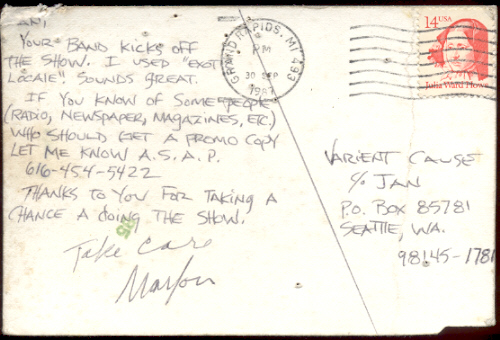 JAN,
YOUR BAND KICKS OFF
THE SHOW. I USED "EXOTIC
LOCALE". SOUNDS GREAT.
IF YOU KNOW OF SOME PEOPLE
(RADIO, NEWSPAPER, MAGAZINES, ETC)
WHO SHOULD GET A PROMO COPY
LET ME KNOW A.S.A.P.
616-454-5422
THANKS TO YOU FOR TAKING A
CHANCE A DOING THE SHOW.
Take Care
GRAND RAPIDS, MI 493
PM
30 SEP
1987
14 USA
Julia Ward Howe
VARIENT CAUSE
c/o JAN
P.O. BOX 85781
SEATTLE, WA.
98145-1781